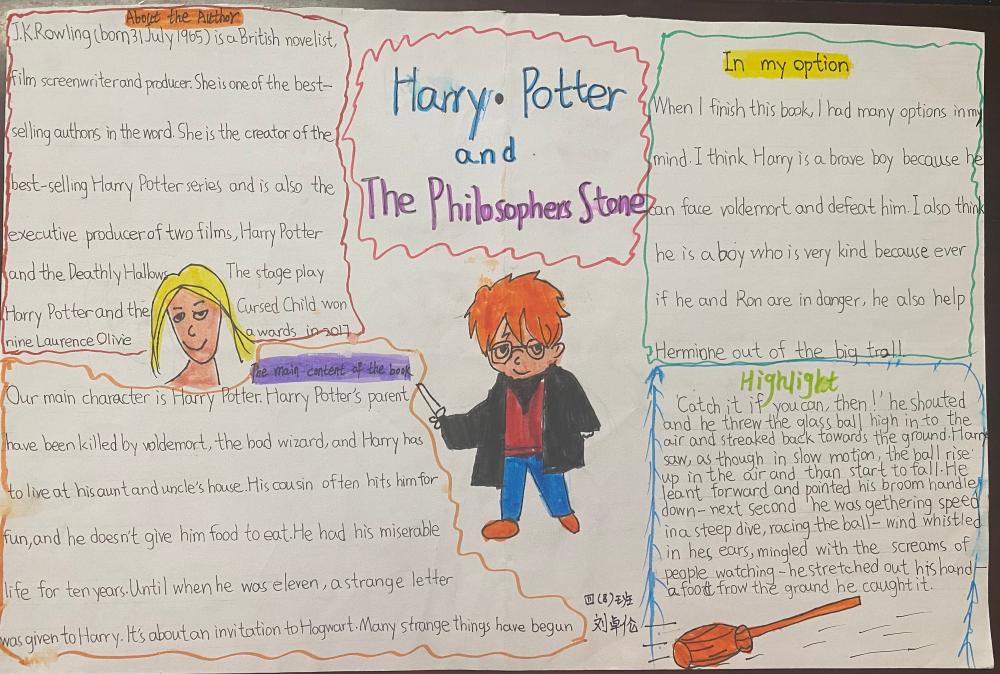 About the Author
J.K.Rowling(born31July1965) is a British novelist,
film screenwriter and producer. She is one of the best-
selling authors in the word. She is the creator of the
best-selling Harry Potter series and is also the
executive producer of two films, Harry Potter
and the Deathly Hallows The stage play
Harry Potter and the Cursed Child won
nine Laurence Olivie awards in 2017
Harry. Potter
and
The Philosophers Stone
In my option
When I finish this book, I had many options in my
mind. I think Harry is a brave boy because he
can face voldemort and defeat him. I also think
he is a boy who is very kind because ever
if he and Ron are in danger, he also help
Hermione out of the big trall
The main content of the book
Our main character is Harry Potter. Harry Potter's parent
have been killed by voldemort, the bad wizard, and Harry has
to live at his aunt and uncle's house. His cousin often hits him for
fun, and he doesn't give him food to eat. He had his miserable
life for ten years. Until when he was eleven, a strange letter
was given to Harry. It's about an invitation to Hogwart. Many strange things have begun
Highlight
'Catch it if you can, then!' he shouted
and he threw the glass ball high in to the
air and streaked back towards the ground. Harry
saw, as though in slow motion, the ball rise
up in the air and than start to fall. He
leant forward and pointed his broom handle
down-next second he was gethering speed
in a steep dive, racing the ball-wind whistled
in hes ears, mingled with the screams of
people watching-he stretched out his hand-
a foot frow the ground he caught it.
四(8)班
刘卓伦